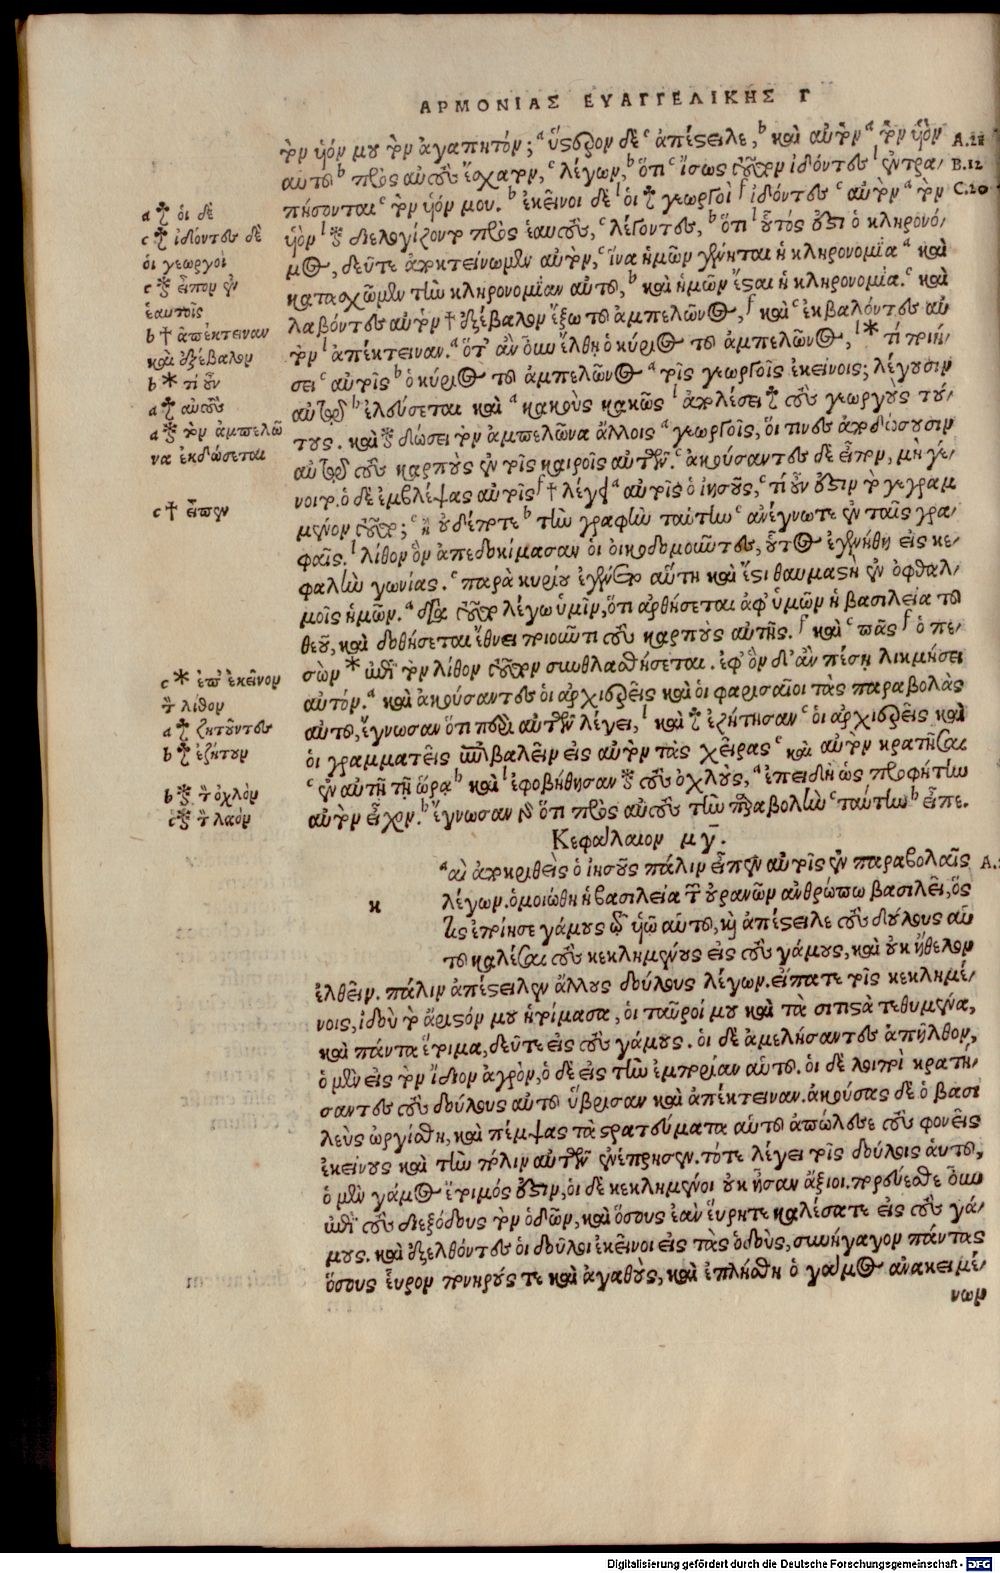 ΑΡΜΟΝΙΑΣ ΕΥΑΓΓΕΛΙΚΗΣ Γ
τὸν υἱόν μου τὸν ἀγαπητόν; ᵃ ὕστερον δὲ ᶜ ἀπέστειλε, ᵇ καὶ αὐτὸν ᵃ τὸν υἱὸν
αὐτοῦ ᵇ πρὸς αὐτοὺς ἔσχατον, ᶜ λέγων, ᵇ ὅτι ᶜ ἴσως τοῦτον ἰδόντες ˡ ἐντρα-
πήσονται ᶜ τὸν υἱόν μου. ᵇ ἐκεῖνοι δὲ ˡ οἱ ☩ γεωργοὶ ᶠ ἰδόντες ᶜ αὐτὸν ᵃ τὸν
υἱὸν ˡ ⁑ διελογίζοντο πρὸς ἑαυτοὺς, ᶜ λέγοντες, ᵇ ὅτι ˡ οὗτός ἐστι ὁ κληρονό-
μος, δεῦτε ἀποκτείνωμεν αὐτὸν, ᶜ ἵνα ἡμῶν γένηται ἡ κληρονομία ᵃ καὶ
κατασχῶμεν τὴν κληρονομίαν αὐτοῦ, ᵇ καὶ ἡμῶν ἔσται ἡ κληρονομία. ᶜ καὶ
λαβόντες αὐτὸν † ἐξέβαλον ἔξω τοῦ ἀμπελῶνος, ᶠ καὶ ᶜ ἐκβαλόντες αὐ
τὸν ˡ ἀπέκτειναν. ᵃ ὅτ' ἂν οὖν ἔλθῃ ὁ κύριος τοῦ ἀμπελῶνος, ˡ * τί ποιή-
σει ᶜ αὐτοῖς ᵇ ὁ κύριος τοῦ ἀμπελῶνος ᵃ τοῖς γεωργοῖς ἐκείνοις; λέγουσιν
αὐτῷ ᵇ ἐλεύσεται καὶ ᵃ κακοὺς κακῶς ˡ ἀπολέσει ☩ τοὺς γεωργοὺς τού-
τους. καὶ ⁑ δώσει τὸν ἀμπελῶνα ἄλλοις ᵃ γεωργοῖς, οἵ τινες ἀποδώσουσιν
αὐτῷ τοὺς καρποὺς ἐν τοῖς καιροῖς αὐτῶν. ᶜ ἀκούσαντες δὲ εἶπον, μὴ γέ-
νοιτο. ὁ δὲ ἐμβλέψας αὐτοῖς ᶠ † λέγει ᵃ αὐτοῖς ὁ ἰησοῦς, ᶜ τί οὖν ἐστιν τὸ γεγραμ
μένον τοῦτο; ᶜ ἢ οὐδέποτε ᵇ τὴν γραφὴν ταύτην ᶜ ἀνέγνωτε ἐν ταῖς γρα-
φαῖς. ˡ λίθον ὃν ἀπεδοκίμασαν οἱ οἰκοδομοῦντες, οὗτος ἐγενήθη εἰς κε-
φαλὴν γωνίας. ᶜ παρὰ κυρίου ἐγένετο αὕτη καὶ ἔστι θαυμαστὴ ἐν ὀφθαλ-
μοῖς ἡμῶν. ᵃ διὰ τοῦτο λέγω ὑμῖν, ὅτι ἀρθήσεται ἀφ' ὑμῶν ἡ βασιλεία τοῦ
θεοῦ, καὶ δοθήσεται ἔθνει ποιοῦντι τοὺς καρποὺς αὐτῆς. ᶠ καὶ ᶜ πᾶς ᶠ ὁ πε-
σὼν * ἐπὶ τὸν λίθον τοῦτον συνθλασθήσεται. ἐφ' ὃν δ' ἂν πέσῃ λικμήσει
αὐτόν. ᵃ καὶ ἀκούσαντες οἱ ἀρχιερεῖς καὶ οἱ φαρισαῖοι τὰς παραβολὰς
αὐτοῦ, ἔγνωσαν ὅτι περὶ αὐτῶν λέγει, ˡ καὶ ☩ ἐζήτησαν ᶜ οἱ ἀρχιερεῖς καὶ
οἱ γραμματεῖς ἐπιβαλεῖν εἰς αὐτὸν τὰς χεῖρας ᶜ καὶ αὐτὸν κρατῆσαι
ᶜ ἐν αὐτῇ τῇ ὥρᾳ ᵇ καὶ ˡ ἐφοβήθησαν ⁑ τοὺς ὄχλους, ᵃ ἐπειδὴ ὡς προφήτην
αὐτὸν εἶχον. ᵇ ἔγνωσαν γὰρ ὅτι πρὸς αὐτοὺς τὴν παραβολὴν ᶜ ταύτην ᵇ εἶπε.
A.21
B.12
C.20
a ☩ οἱ δὲ
c ☩ ἰδόντες δὲ
οἱ γεωργοὶ
c ⁑ εἶπον ἐν
ἑαυτοῖς
b † ἀπέκτειναν
καὶ ἐξέβαλον
b * τί οὖν
a ☩ αὐτοὺς
a ⁑ τὸν ἀμπελῶ
να ἐκδώσεται
c † εἶπεν
c * ἐπ' ἐκεῖνον
τὸν λίθον
a ☩ ζητοῦντες
b ☩ ἐζήτουν
b ⁑ τὸν ὄχλον
c ⁑ τὸν λαόν
Κεφάλαιον μγ.
ᵃ καὶ ἀποκριθεὶς ὁ ἰησοῦς πάλιν εἶπεν αὐτοῖς ἐν παραβολαῖς
λέγων. ὁμοιώθη ἡ βασιλεία τῶν οὐρανῶν ἀνθρώπῳ βασιλεῖ, ὅς
τις ἐποίησε γάμους τῷ υἱῷ αὑτοῦ, καὶ ἀπέστειλε τοὺς δούλους αὑ
τοῦ καλέσαι τοὺς κεκλημένους εἰς τοὺς γάμους, καὶ οὐκ ἤθελον
ἐλθεῖν. πάλιν ἀπέστειλεν ἄλλους δούλους λέγων. εἴπατε τοῖς κεκλημέ-
νοις, ἰδοὺ τὸ ἄριστόν μου ἡτοίμασα, οἱ ταῦροί μου καὶ τὰ σιτιστὰ τεθυμένα,
καὶ πάντα ἕτοιμα, δεῦτε εἰς τοὺς γάμους. οἱ δὲ ἀμελήσαντες ἀπῆλθον,
ὁ μὲν εἰς τὸν ἴδιον ἀγρὸν, ὁ δὲ εἰς τὴν ἐμπορίαν αὑτοῦ. οἱ δὲ λοιποὶ κρατή-
σαντες τοὺς δούλους αὐτοῦ ὕβρισαν καὶ ἀπέκτειναν. ἀκούσας δὲ ὁ βασι
λεὺς ὠργίσθη, καὶ πέμψας τὰ στρατεύματα αὑτοῦ ἀπώλεσε τοὺς φονεῖς
ἐκείνους καὶ τὴν πόλιν αὐτῶν ἐνέπρησεν. τότε λέγει τοῖς δούλοις αὑτοῦ,
ὁ μὲν γάμος ἕτοιμός ἐστιν, οἱ δὲ κεκλημένοι οὐκ ἦσαν ἄξιοι. πορεύεσθε οὖν
ἐπὶ τοὺς διεξόδους τῶν ὁδῶν, καὶ ὅσους ἐὰν εὕρητε καλέσατε εἰς τοὺς γά-
μους. καὶ ἐξελθόντες οἱ δοῦλοι ἐκεῖνοι εἰς τὰς ὁδοὺς, συνήγαγον πάντας
ὅσους εὗρον πονηρούς τε καὶ ἀγαθοὺς, καὶ ἐπλήσθη ὁ γάμος ἀνακειμέ-
νων
Digitalisierung gefördert durch die Deutsche Forschungsgemeinschaft - DFG